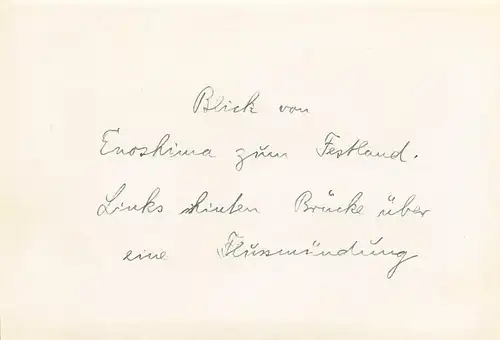 Blick von
Enoshima zum Festland.
Links hinten Brücke über
eine Flussmündung